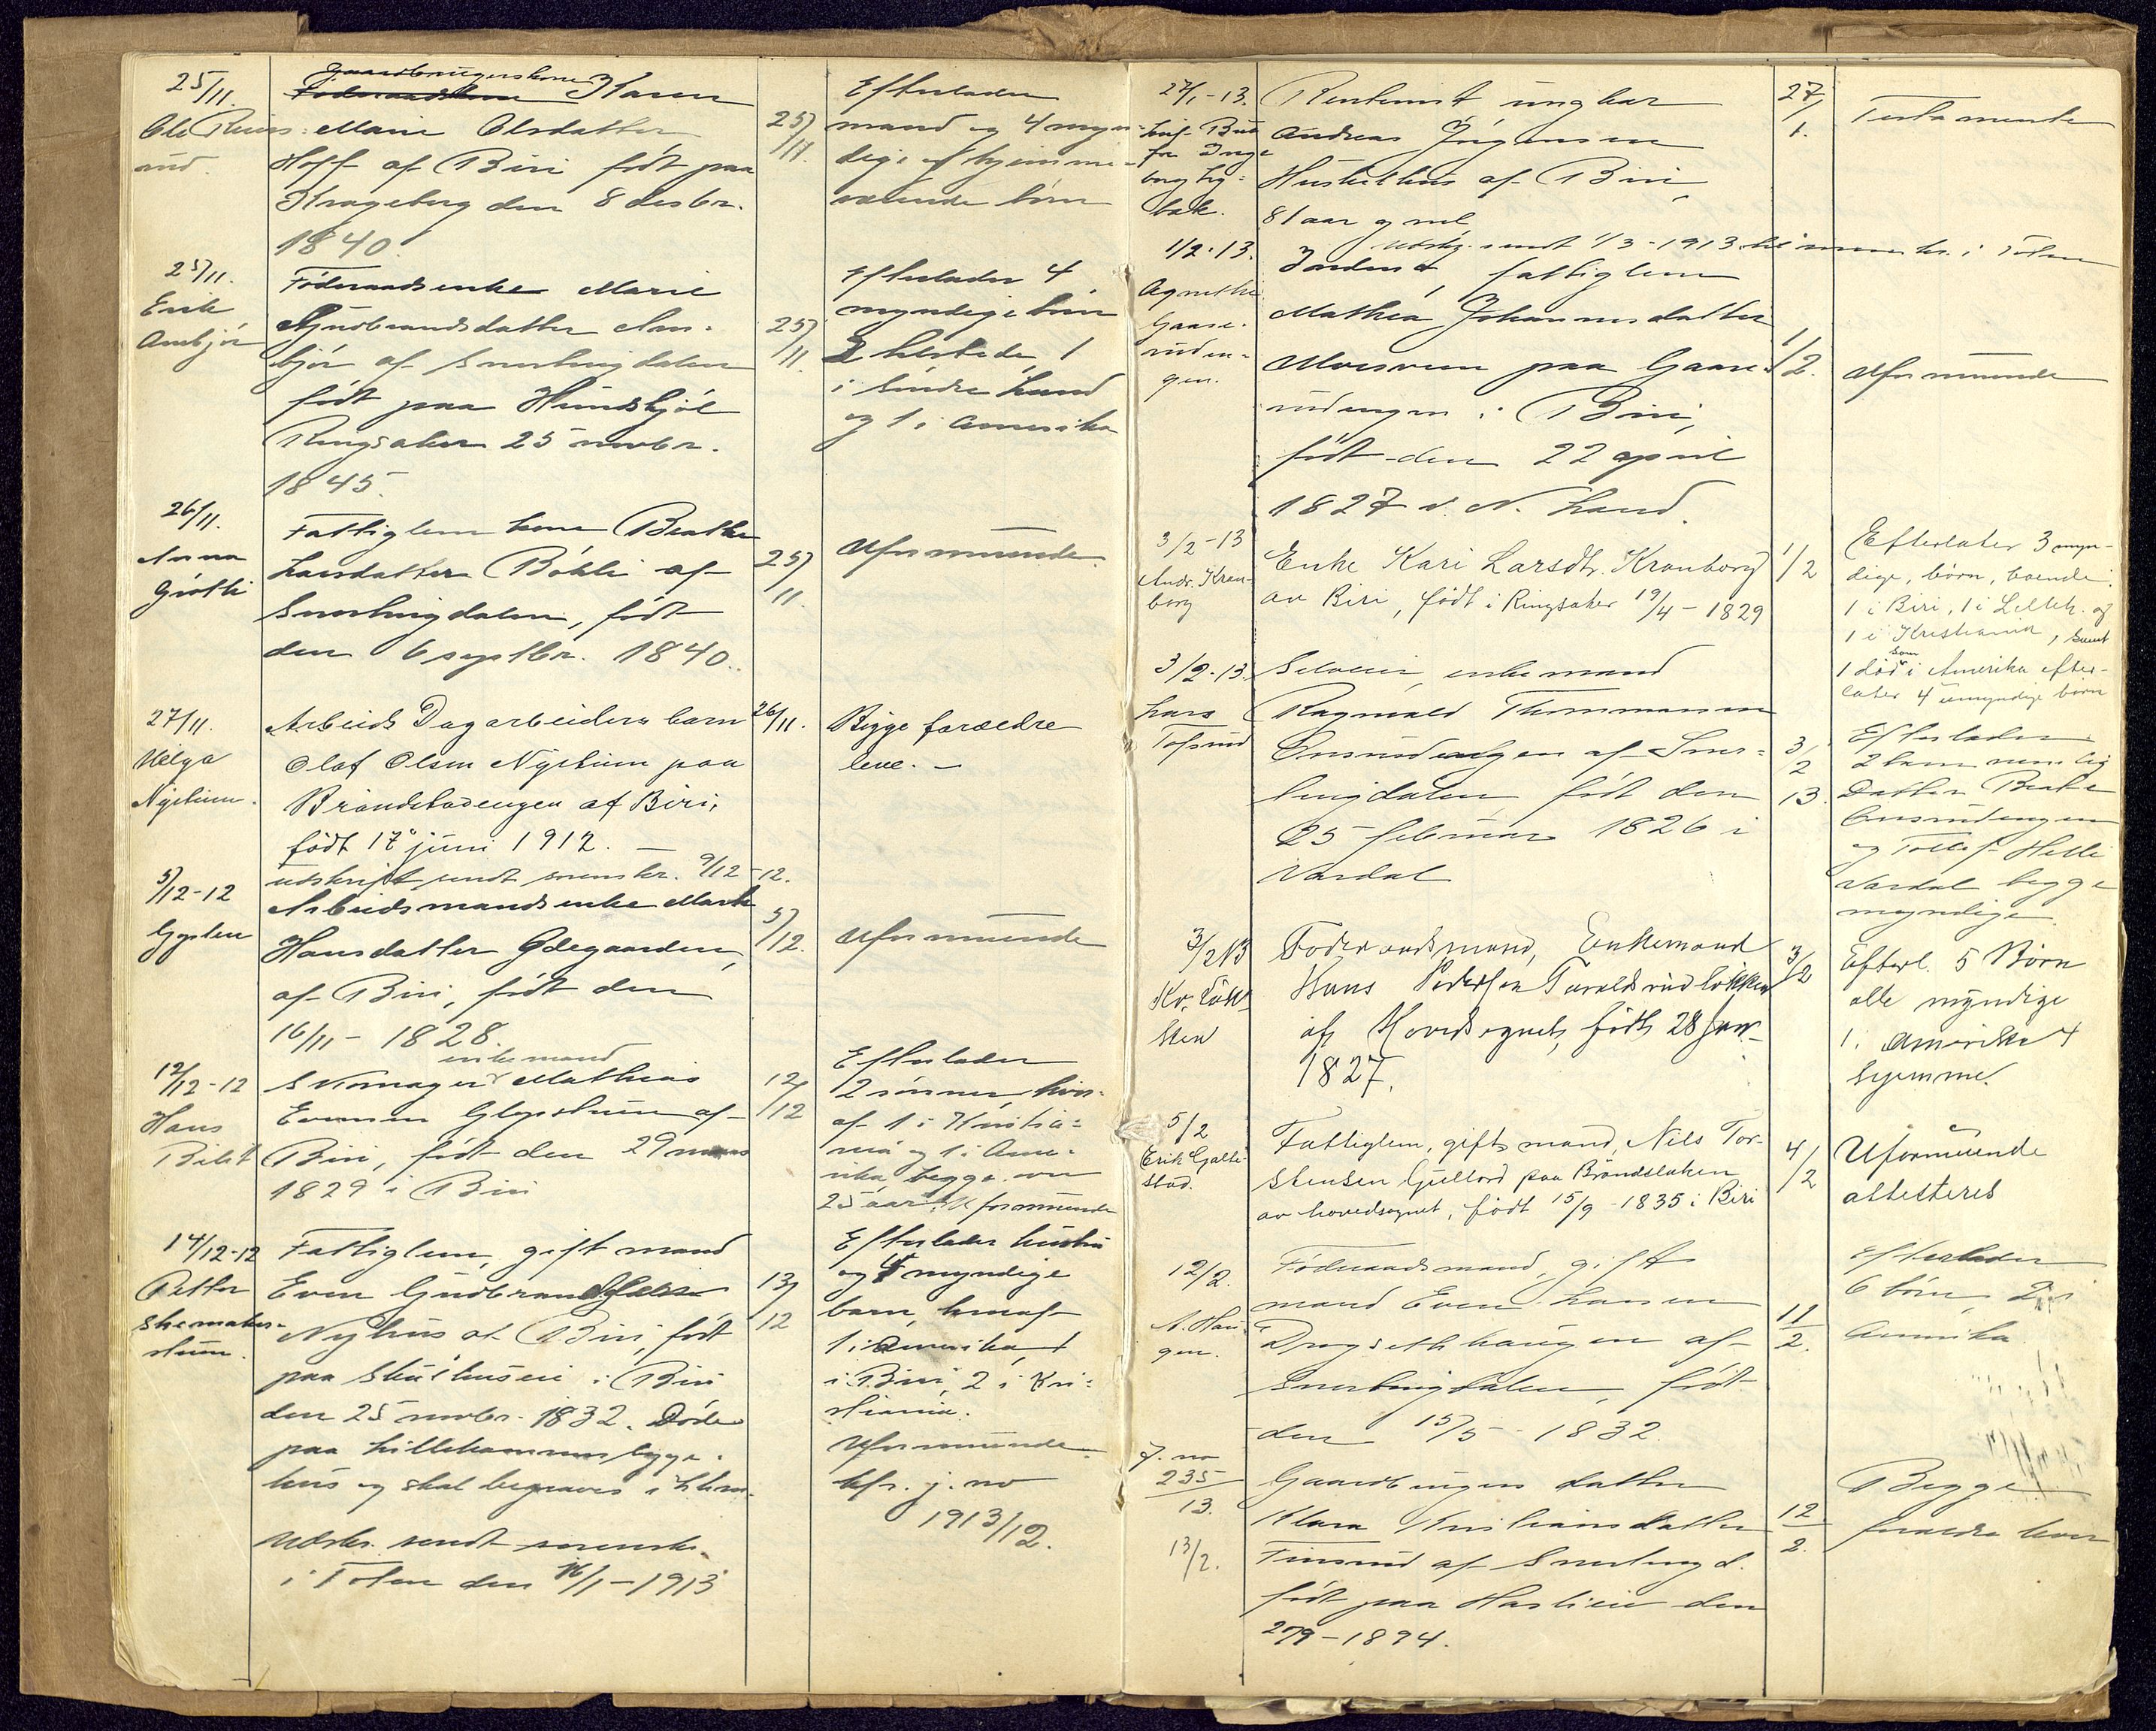 25/11.
Ole Ruus-
rud.
Gaardbrugerskone
Føderaadskone Karen
Marie Olsdatter
Hoff af Biri født paa
Krageberg den 8 desbr.
1840.
25/11.
Efterlader
mand og 4 myn-
dige hjemme-
værende børn
25/11.
Erik
Ambjør
Føderaadsenke Marie
Gudbrandsdatter Am-
bjør af Snertingdalen
født paa Hundskjøl
Ringsaker 25 novbr.
1845.
25/11.
Efterlader 4
myndige børn
2 hlstede, 1
i Søndre Land
og 1 i Amerika
26/11.
Anna
Grøtli
Fattiglem kone Beathe
Larsdatter Bøhli af
Snertingdalen, født
den 6 septbr. 1840.
25/11.
Uformuende.
27/11.
Helga
Nyhuun.
Arbeids Dagarbeiders barn
Olaf Olsen Nystuen paa
Brændebadengen af Biri,
født 17 juni 1912. —
Udskrift sendt sorenskr. 9/12-12.
26/11.
Begge forældre
leve. —
5/12-12
Gopleu
Arbeidsmandsenke Marthe
Hansdatter Ødegaarden,
af Biri, født den
16/11 - 1828.
5/12.
Uformuende
12/12-12
Hans
Bilit
enkemand
Skomager Mathias
Evensen Glæstuen af
Biri, født den 29 mars
1829 i Biri
12/12
Efterlader
2 sønner, hvor-
af 1 i Kristia-
nia og 1 i Ame-
rika, begge over
25 aar. Uformuende
14/12-12
Petter
Skomaker-
stuen.
Fattiglem, gift mand
Even Gudbrandsen
Nyhus af Biri, født
paa Skulhuseie i Biri
den 25 novbr. 1832. Døde
paa Lillehammer syge-
hus og skal begraves i Lhm.
Udskr. sendt sorenskr.
i Toten den 16/1-1913
13/12
Efterlader hustru
og 4 myndige
barn, hvoraf
1 i Amerika, 1
i Biri, 2 i Kri-
stiania.
Uformuende
hfr. j. no
1913/12.
27/1-13.
Rentenist ungkar
Andreas Jørgensen
Hustulhus af Biri,
81 aar gml
Udskr. sendt 1/3-1913 til sorenskr. i Toten
27/1.
Testamente
1/2-13.
Agnethe
Gaase-
ruden-
gen.
Inderst, fattiglem
Mathea Johannesdatter
Moesveen paa Gaase-
rudengen i Biri,
født den 22 april
1827 i N. Land.
1/2.
Uformuende
3/2-13
Andr. Kron-
borg
Enke Kari Larsdtr. Kronborg
av Biri, født i Ringsaker 19/4-1829
1/2
Efterlater 3 myn-
dige, børn, boende
1 i Biri, 1 i Lilleh. og
1 i Kristiania, samt
som
1 død i Amerika efter-
later 4 umyndige børn
3/2-13.
Lars
Tofsrud
Selveier, enkemand
Ragnvald Thommassen
Onsrudengen af Sner-
tingdalen, født den
25 februar 1826 i
Vardal
3/2
13.
Efterlader
2 barn nemlig
Datter Beate
Onsrudengen
og Tollef Helli
Vardal begge
myndige
3/2 13
Kr. Løkk-
sten
Føderaadsmand, Enkemand
Hans Pedersen Taraldsrudløkken
af Hovedsognet, født 28 Jan.
1827.
3/2
Efterl. 5 Børn
alle myndige
1 i Amerika 4
hjemme.
5/2
Erik Galte-
stad.
Fattiglem, gift mand, Nils Tor-
stensen Gullord paa Brændslaken
av hovedsognet, født 15/9-1835 i Biri
4/2
Uformuende
attesteres
12/2.
A. Hau-
gen.
Føderaadsmand, gift
mand Even Larsen
Dragsethhaugen af
Snertingdalen, født
den 15/5-1832.
11/2.
Efterlader
6 børn, 2 i
Amerika
J. no
235/13.
13/2.
Gaardbruger datter
Klara Kristiansdatter
Finsrud af Snertingd.
født paa Haslien den
27/9-1894.
12/2.
Begge
forældre lever